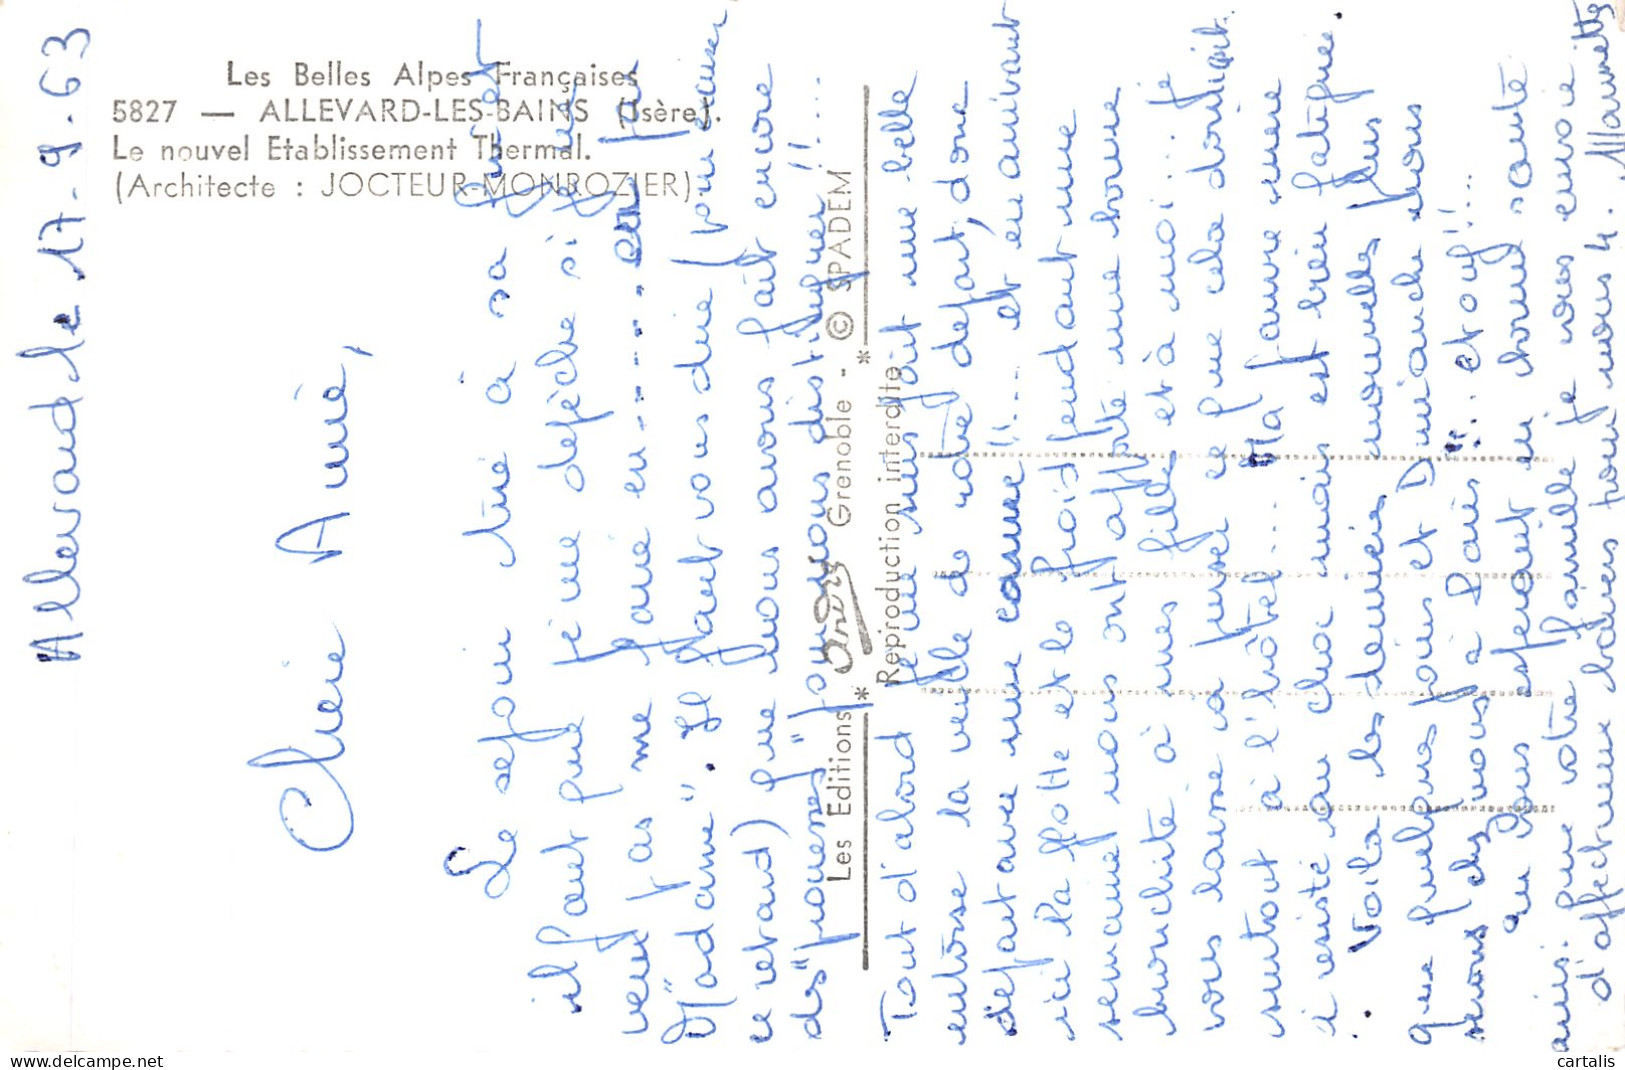 Les Belles Alpes Françaises
5827 — ALLEVARD-LES-BAINS (Isère).
Le nouvel Etablissement Thermal.
(Architecte : JOCTEUR-MONROZIER).
Les Editions * Grenoble - © SPADEM *
Reproduction interdite
Allevard le 17-9-63
Chère Amie,
Le séjour tire à sa fin et
il faut que je me dépêche si je ne
veux pas me faire en---- par
M"adame". Il faut vous dire (pour excuser
ce retard) que nous avons fait encore
des "prouesses" pour nous distinguer!!....
Tout d'abord je me suis fait une belle
entorse la veille de notre départ, donc
départ avec une canne!!... et en arrivant
ici la flotte et le froid pendant une
semaine nous ont apporté une bonne
bronchite à mes filles et à moi... je
vous laisse à penser ce que cela donnait
surtout à l'hôtel... Ma pauvre mère
a résisté au choc mais est bien fatiguée.
Voilà les dernières nouvelles plus
que quelques jours et Dimanche nous
serons chez nous à Paris!!... et ouf!!...
En vous espérant en bonne santé
ainsi que votre famille je vous envoie
d'affectueux baisers pour nous 4.
cartalis